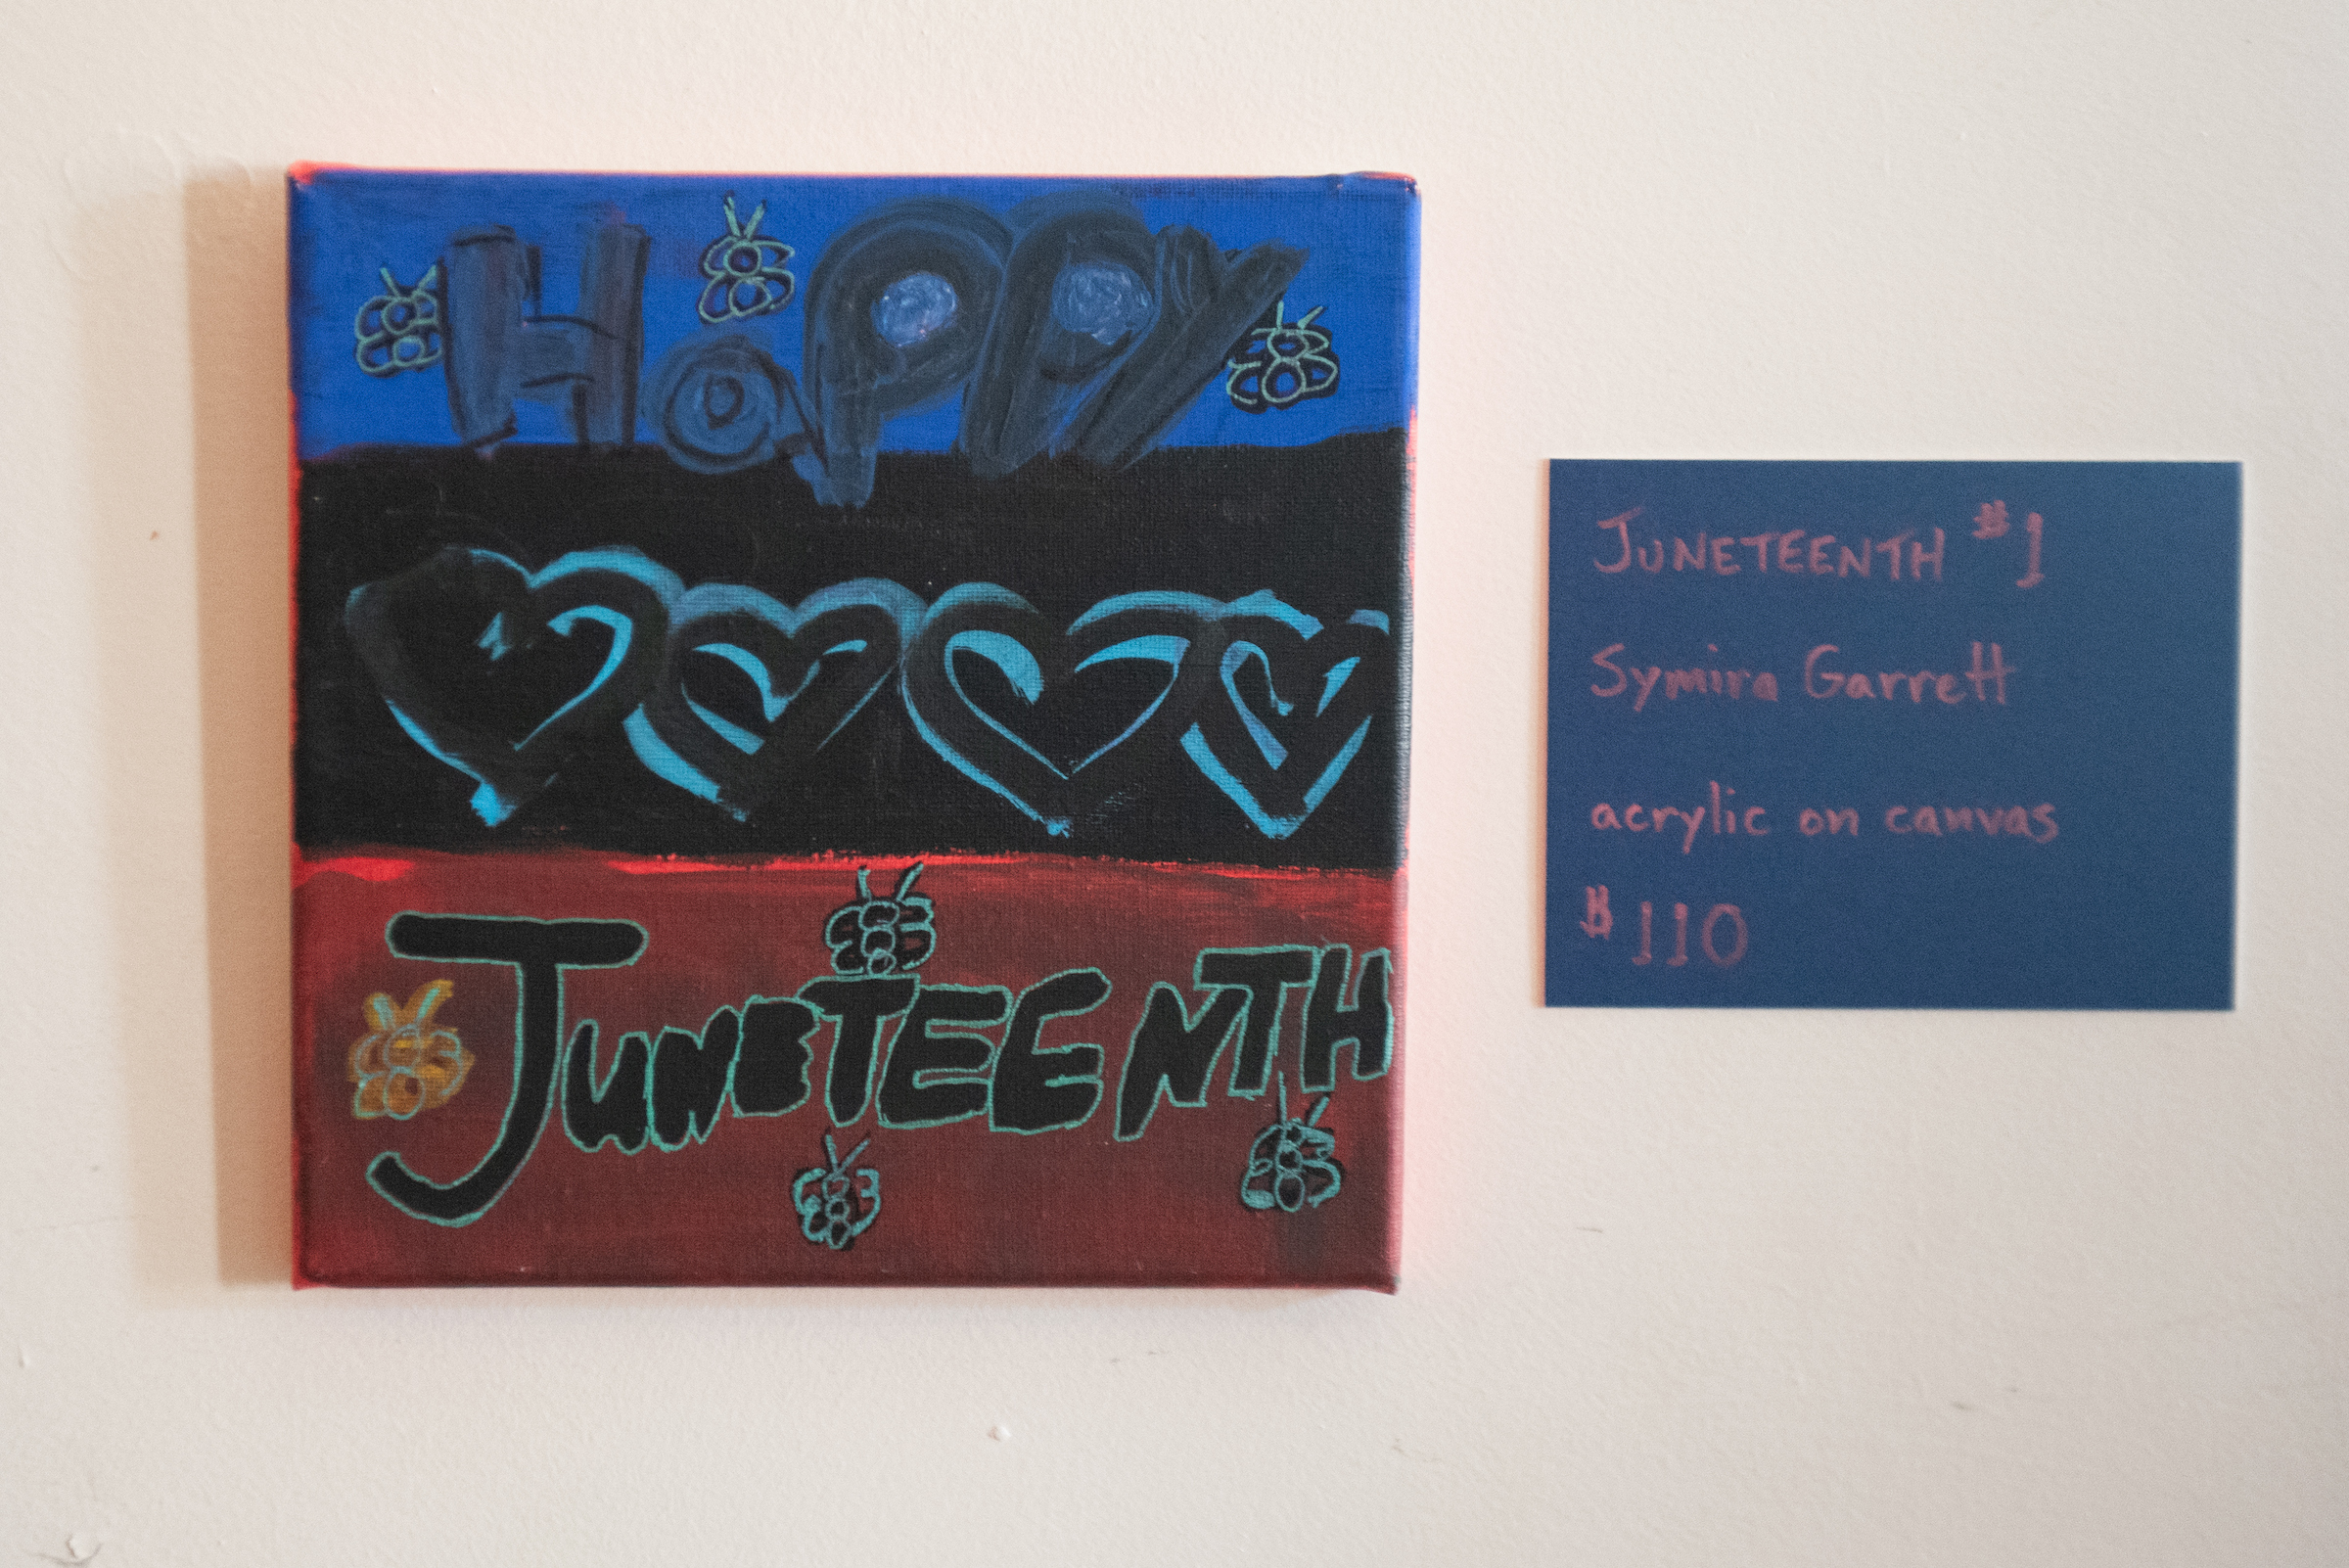 HaPPY
JUNETEENTH
JUNETEENTH #1
Symira Garrett
acrylic on canvas
$110